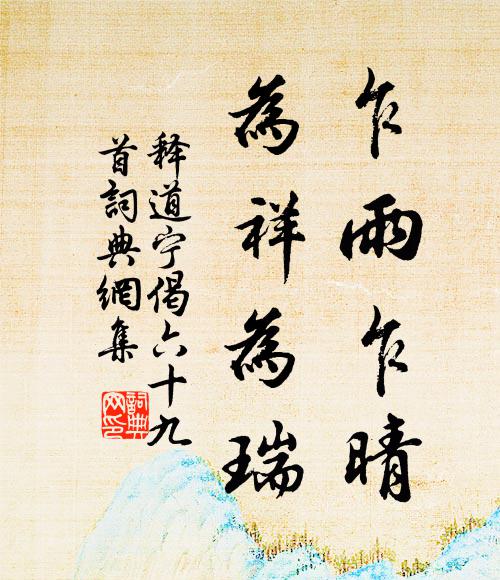 乍雨乍晴
為祥為瑞
释道宁偈六十九
首詞典網集
詞典
网印